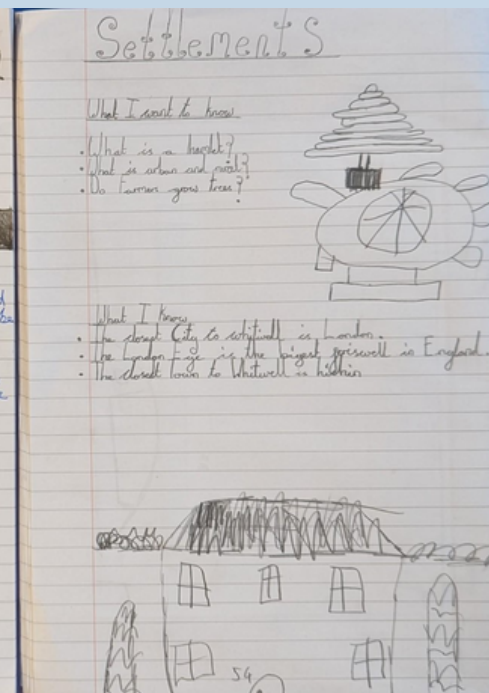 Settlements
What I want to know
• What is a hamlet?
• What is urban and rural?
• Do Farmers grow trees?
What I Know
• The closest City to whitwell is London.
• The London Eye is the bigest in England.
• The closest town to Whitwell is hichin
54